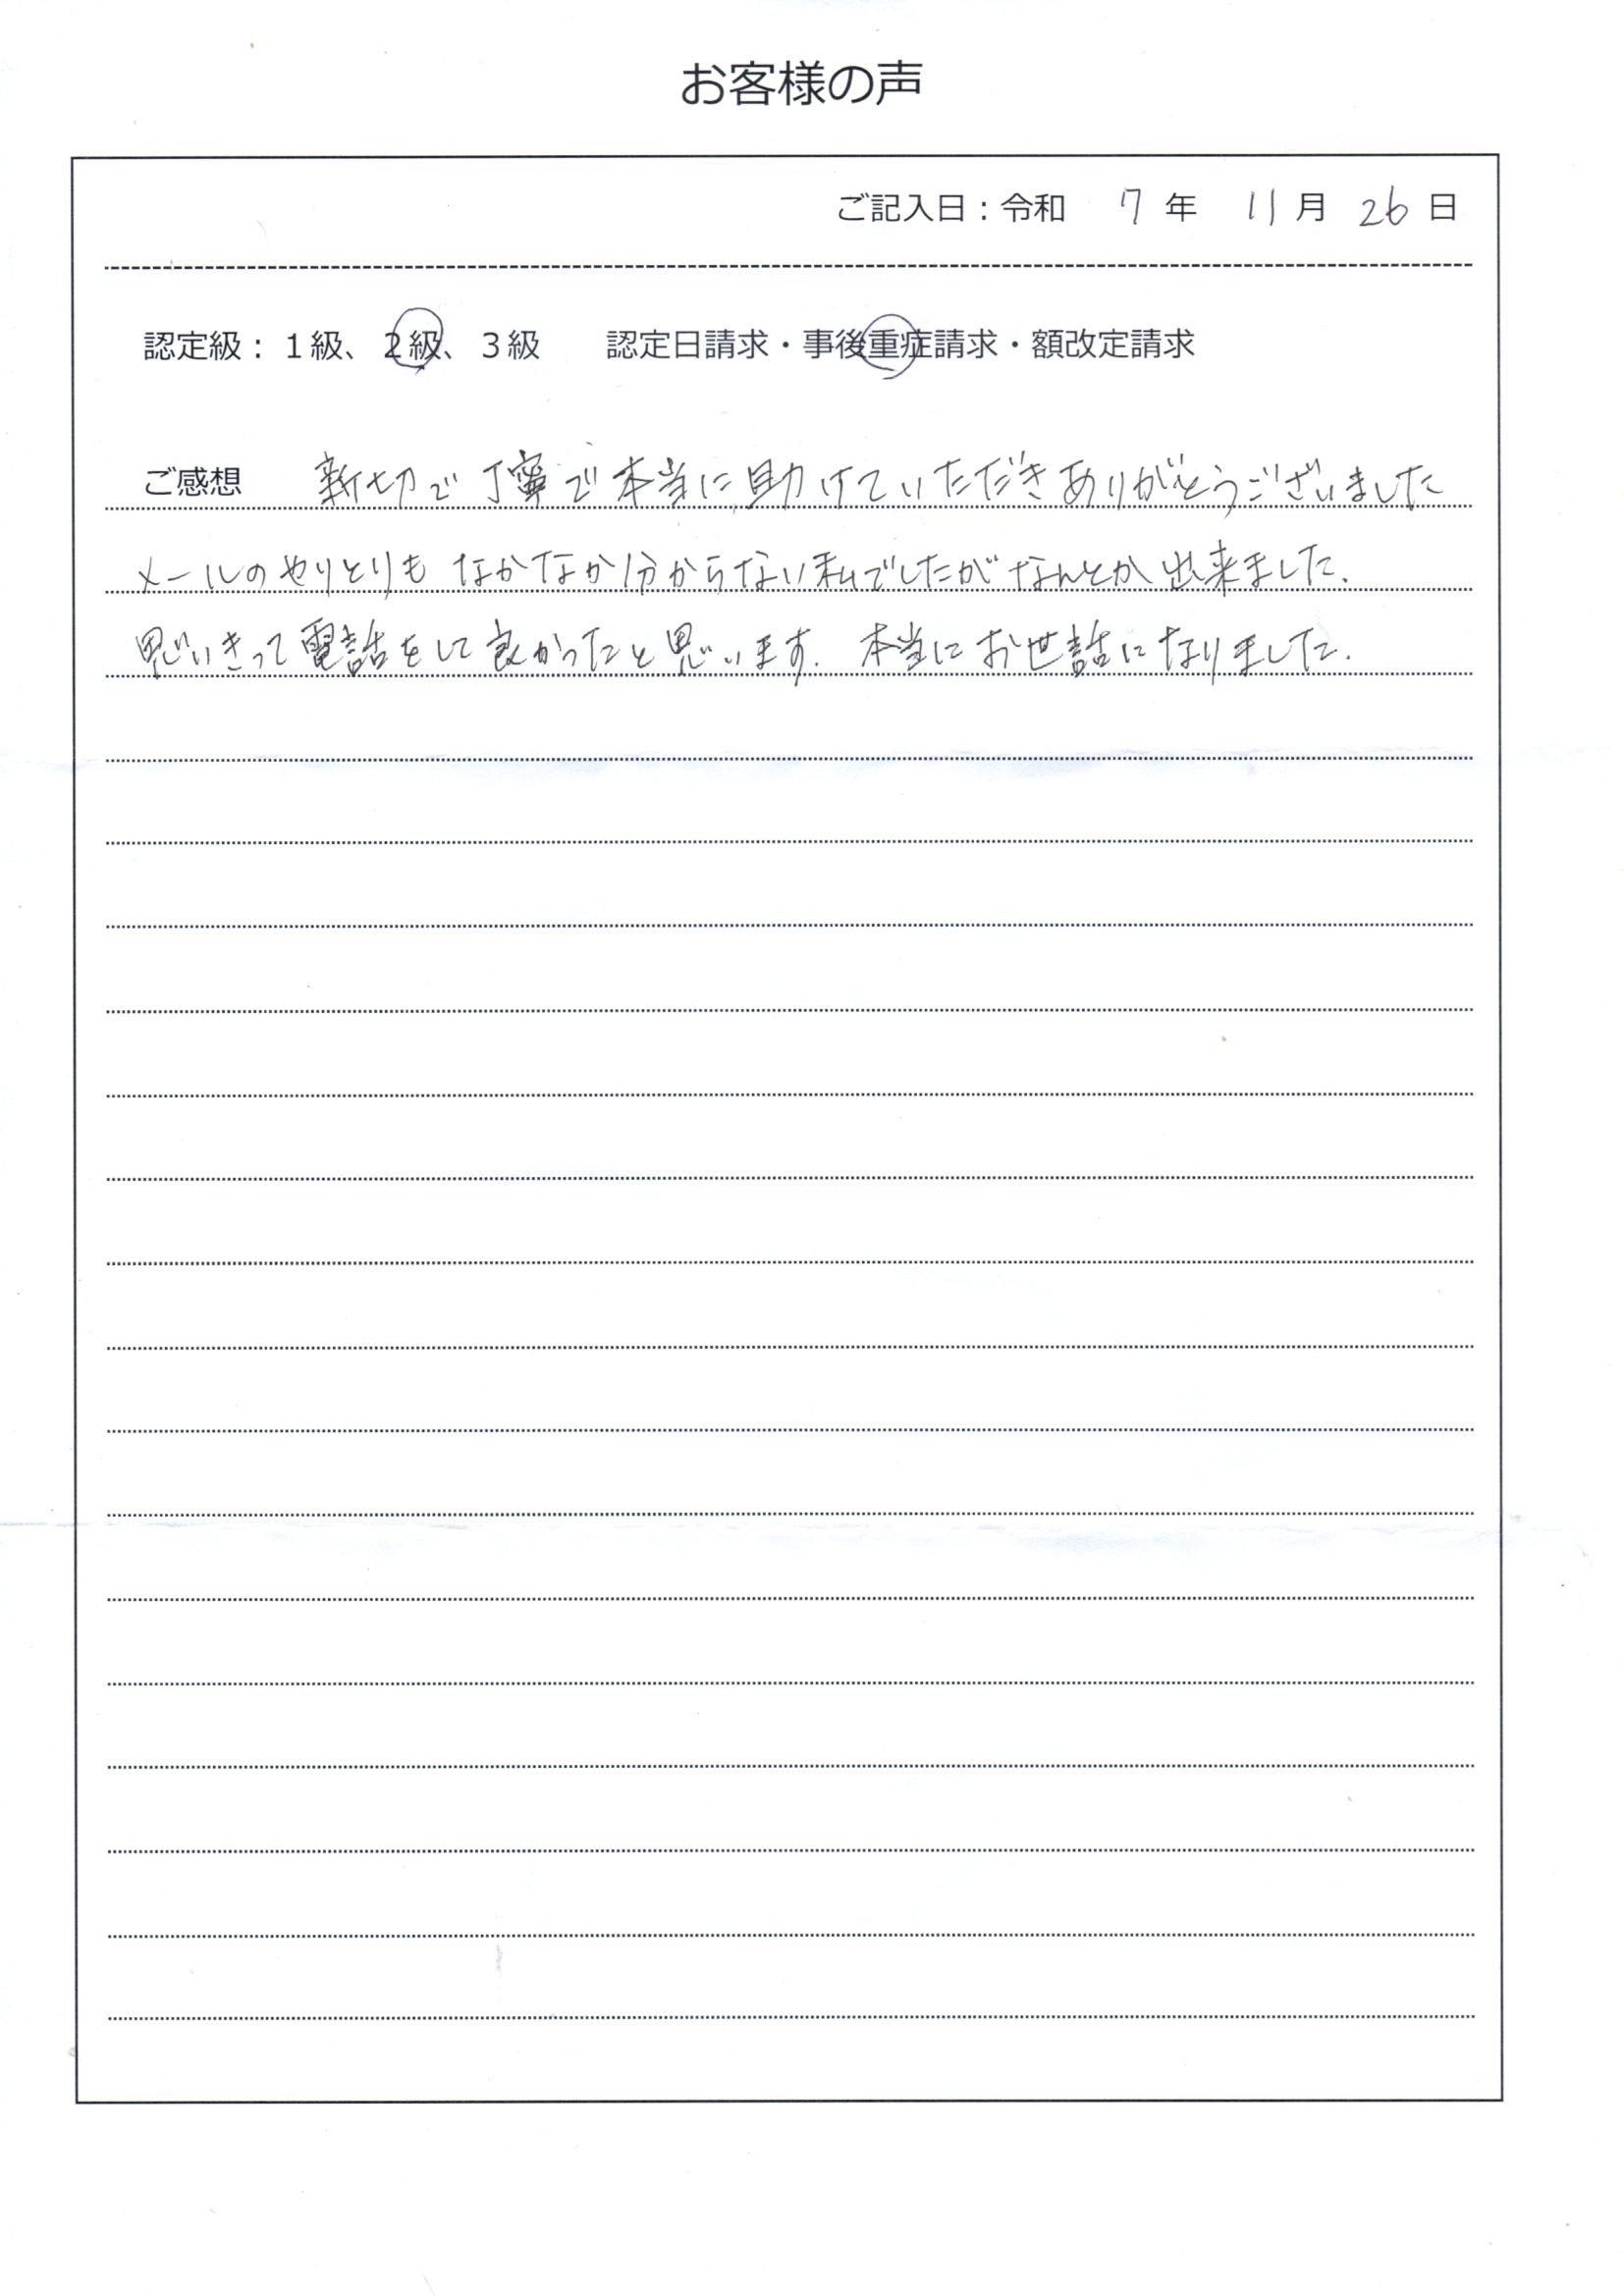 お客様の声
ご記入日：令和 7 年 11 月 26 日
認定級：１級、２級、３級 認定日請求・事後重症請求・額改定請求
ご感想 新切で丁寧で本当に助けていただきありがとうございました
メールのやりとりもなかなか分からない私でしたがなんとか出来ました.
思いきって電話をして良かったと思います. 本当にお世話になりました.